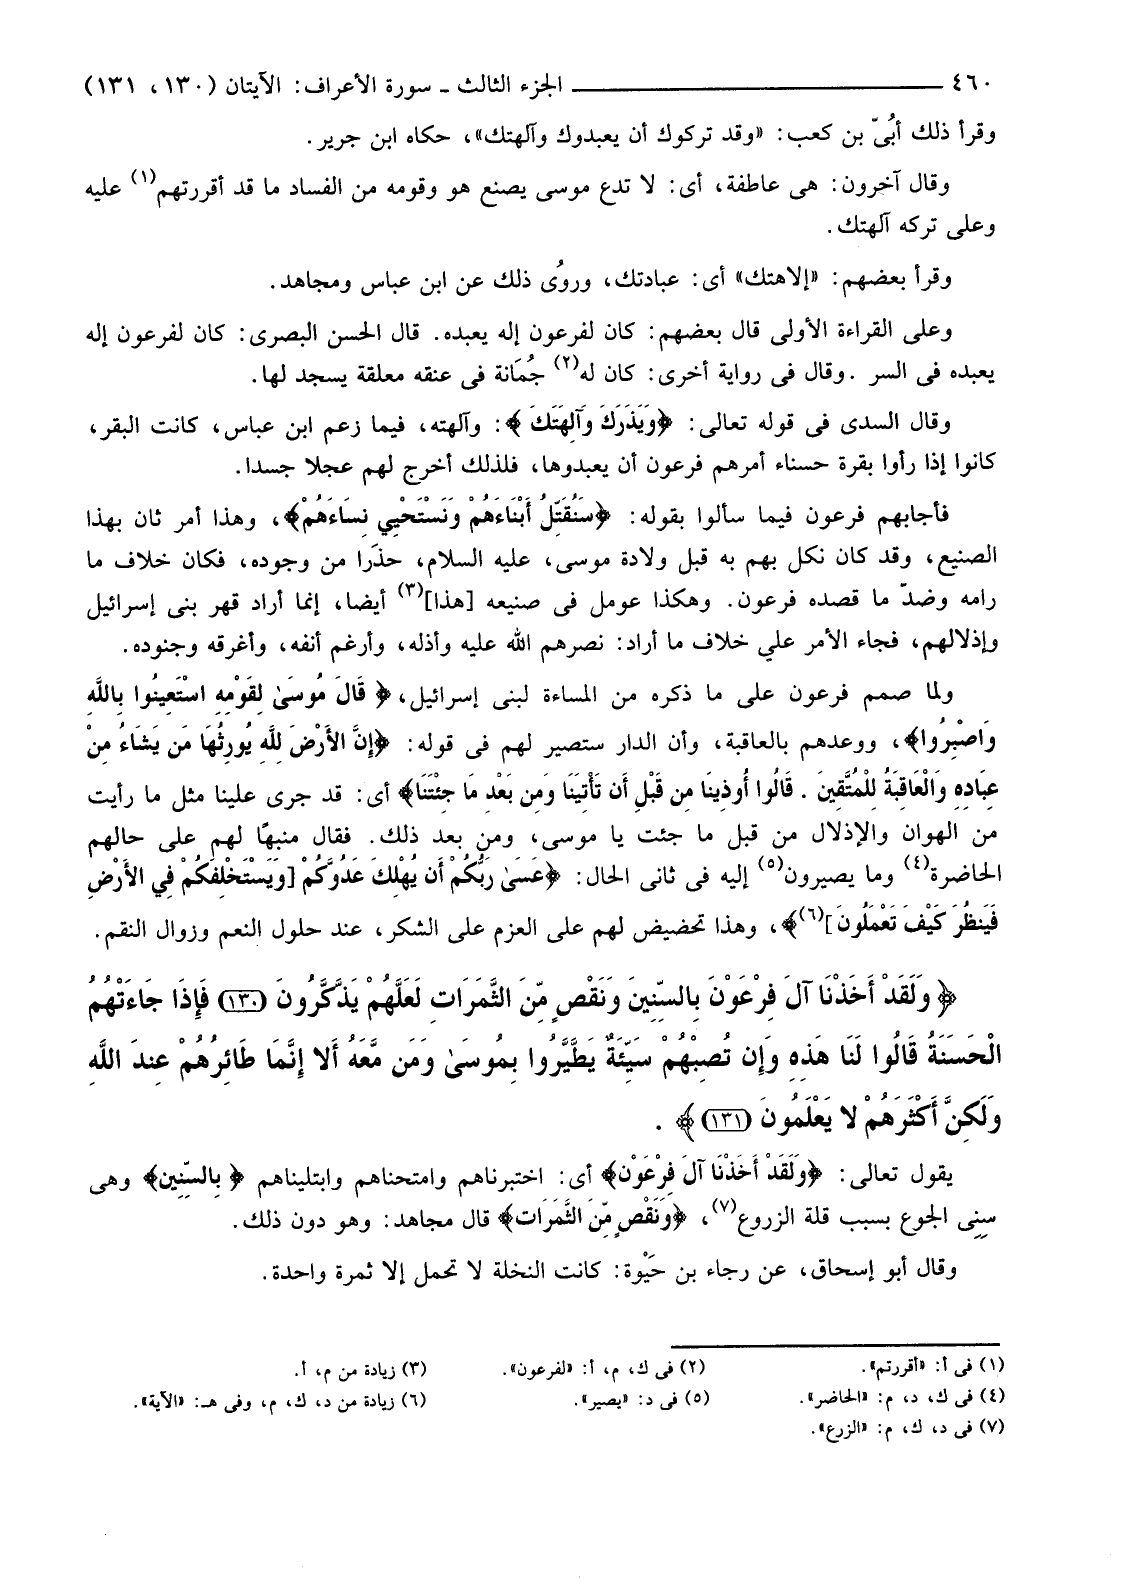 ٤٦٠ ــــــــــ الجزء الثالث ـ سورة الأعراف: الآيتان (١٣٠، ١٣١)
وقرأ ذلك أُبىّ بن كعب: «وقد تركوك أن يعبدوك وآلهتك»، حكاه ابن جرير.
وقال آخرون: هى عاطفة، أى: لا تدع موسى يصنع هو وقومه من الفساد ما قد أقررتهم(١) عليه
وعلى تركه آلهتك.
وقرأ بعضهم: «إلاهتك» أى: عبادتك، وروُى ذلك عن ابن عباس ومجاهد.
وعلى القراءة الأولى قال بعضهم: كان لفرعون إله يعبده. قال الحسن البصرى: كان لفرعون إله
يعبده فى السر .وقال فى رواية أخرى: كان له(٢) جُمَانة فى عنقه معلقة يسجد لها.
وقال السدى فى قوله تعالى: ﴿وَيَذَرَكَ وَآلِهَتَكَ﴾: وآلهته، فيما زعم ابن عباس، كانت البقر،
كانوا إذا رأوا بقرة حسناء أمرهم فرعون أن يعبدوها، فلذلك أخرج لهم عجلا جسدا.
فأجابهم فرعون فيما سألوا بقوله: ﴿سَنُقَتِّلُ أَبْنَاءَهُمْ وَنَسْتَحْيِي نِسَاءَهُمْ﴾، وهذا أمر ثان بهذا
الصنيع، وقد كان نكل بهم به قبل ولادة موسى، عليه السلام، حذَرا من وجوده، فكان خلاف ما
رامه وضدّ ما قصده فرعون. وهكذا عومل فى صنيعه [هذا](٣) أيضا، إنما أراد قهر بنى إسرائيل
وإذلالهم، فجاء الأمر علي خلاف ما أراد: نصرهم الله عليه وأذله، وأرغم أنفه، وأغرقه وجنوده.
ولما صمم فرعون على ما ذكره من المساءة لبنى إسرائيل، ﴿قَالَ مُوسَىٰ لِقَوْمِهِ اسْتَعِينُوا بِاللَّهِ
وَاصْبِرُوا﴾، ووعدهم بالعاقبة، وأن الدار ستصير لهم فى قوله: ﴿إِنَّ الأَرْضَ لِلَّهِ يُورِثُهَا مَن يَشَاءُ مِنْ
عِبَادِهِ وَالْعَاقِبَةُ لِلْمُتَّقِينَ . قَالُوا أُوذِينَا مِن قَبْلِ أَن تَأْتِيَنَا وَمِن بَعْدِ مَا جِئْتَنَا﴾ أى: قد جرى علينا مثل ما رأيت
من الهوان والإذلال من قبل ما جئت يا موسى، ومن بعد ذلك. فقال منبهًا لهم على حالهم
الحاضرة(٤) وما يصيرون(٥) إليه فى ثانى الحال: ﴿عَسَىٰ رَبُّكُمْ أَن يُهْلِكَ عَدُوَّكُمْ [وَيَسْتَخْلِفَكُمْ فِي الأَرْضِ
فَيَنظُرَ كَيْفَ تَعْمَلُونَ](٦)﴾، وهذا تحضيض لهم على العزم على الشكر، عند حلول النعم وزوال النقم.
﴿وَلَقَدْ أَخَذْنَا آلَ فِرْعَوْنَ بِالسِّنِينَ وَنَقْصٍ مِّنَ الثَّمَرَاتِ لَعَلَّهُمْ يَذَّكَّرُونَ (١٣٠) فَإِذَا جَاءَتْهُمُ
الْحَسَنَةُ قَالُوا لَنَا هَذِهِ وَإِن تُصِبْهُمْ سَيِّئَةٌ يَطَّيَّرُوا بِمُوسَىٰ وَمَن مَّعَهُ أَلا إِنَّمَا طَائِرُهُمْ عِندَ اللَّهِ
وَلَكِنَّ أَكْثَرَهُمْ لا يَعْلَمُونَ (١٣١)﴾ .
يقول تعالى: ﴿وَلَقَدْ أَخَذْنَا آلَ فِرْعَوْنَ﴾ أى: اختبرناهم وامتحناهم وابتليناهم ﴿بِالسِّنِينَ﴾ وهى
سِنِى الجوع بسبب قلة الزروع(٧)، ﴿وَنَقْصٍ مِّنَ الثَّمَرَات﴾ قال مجاهد: وهو دون ذلك.
وقال أبو إسحاق، عن رجاء بن حَيْوة: كانت النخلة لا تحمل إلا ثمرة واحدة.
(١) فى أ: «أقررتم». (٢) فى ك، م، أ: «لفرعون». (٣) زيادة من م، أ.
(٤) فى ك، د، م: «الحاضر». (٥) فى د: «يصير». (٦) زيادة من د، ك، م، وفى هـ: «الآية».
(٧) فى د، ك، م: «الزرع».